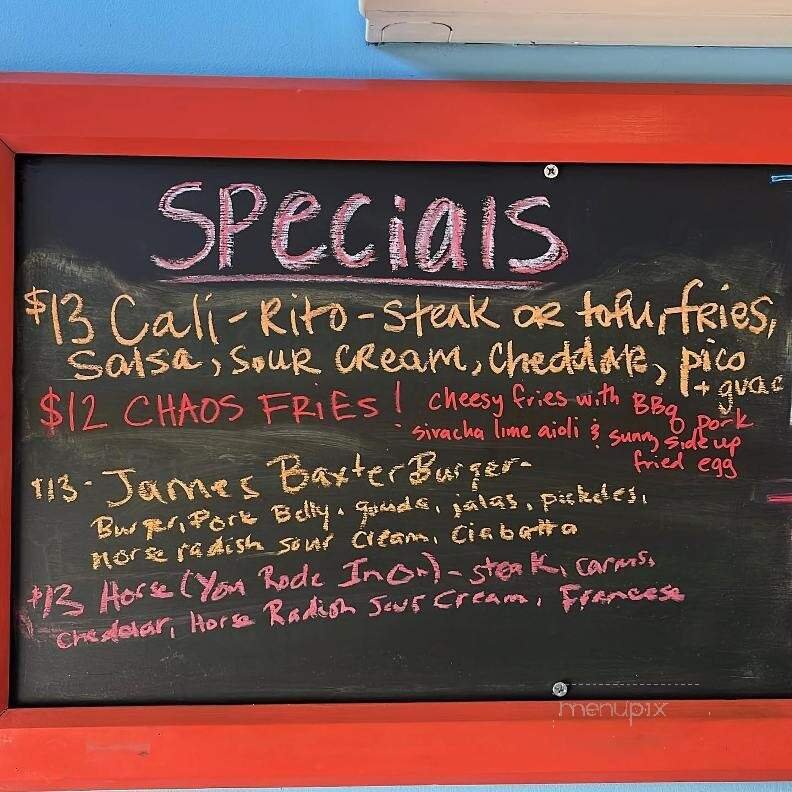 SPecials
$13 Cali-Rito-Steak OR tofu, fRies,
Salsa, Sour CReam, CheddaR, pico
+ guac
$12 CHAOS FRiES! cheesy fries with BBQ pork
siracha lime aioli & sunny side up
fried egg
$13- James Baxter Burger-
Burger, Pork Belly, gouda, jalas, pickeles,
Horse radish sour cream, Ciabatta
$13 Horse (You Rode In On) - steak, carms,
cheddar, Horse Radish Sour Cream, Francese
menupix